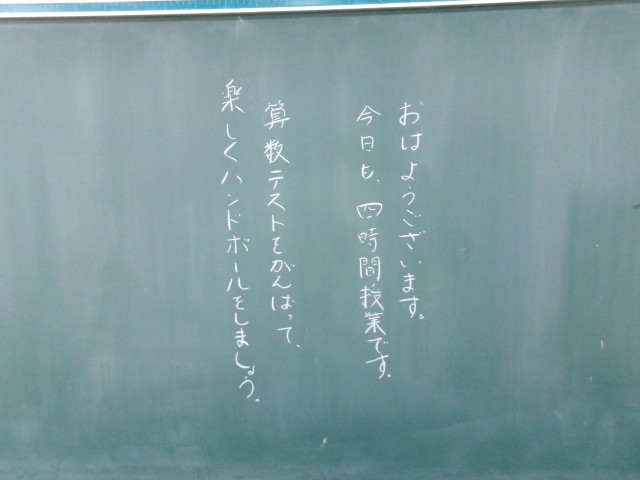 おはようございます。
今日も、四時間授業です。
算数テストをがんばって、
楽しくハンドボールをしましょう。